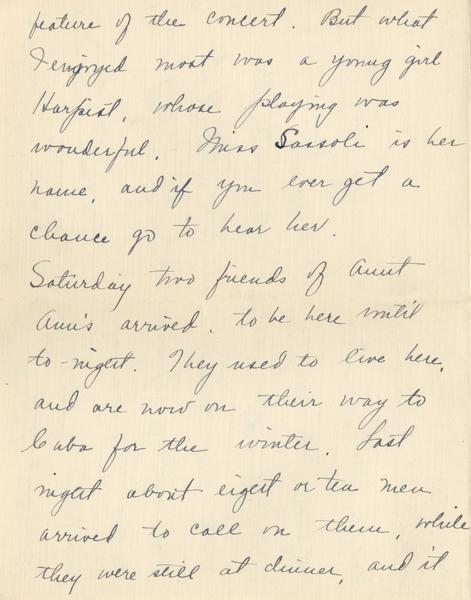 feature of the concert. But what
I enjoyed most was a young girl
Harpist, whose playing was
wonderful. Miss Sassoli is her
name, and if you ever get a
chance go to hear her.
Saturday two friends of Aunt
Ann's arrived, to be here until
to-night. They used to live here,
and are now on their way to
Cuba for the winter. Last
night about eight or ten men
arrived to call on them, while
they were still at dinner, and it